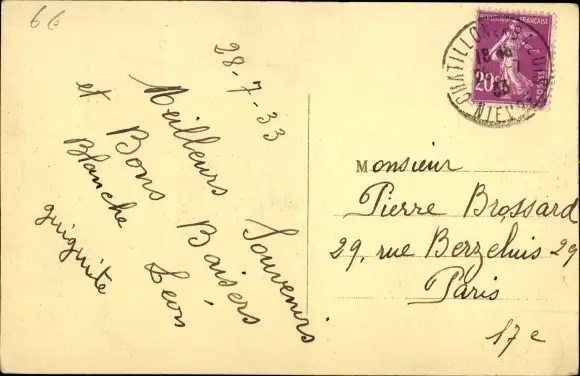 66
28-7-33
Meilleurs Souvenirs
et Bons Baisers
Blanche Léon
guiguite
RÉPUBLIQUE FRANÇAISE
20c
POSTES
CHATILLON-EN-BAZOIS
18
33
NIEVRE
Monsieur
Pierre Brossard
29, rue Berzelius 29
Paris
17e